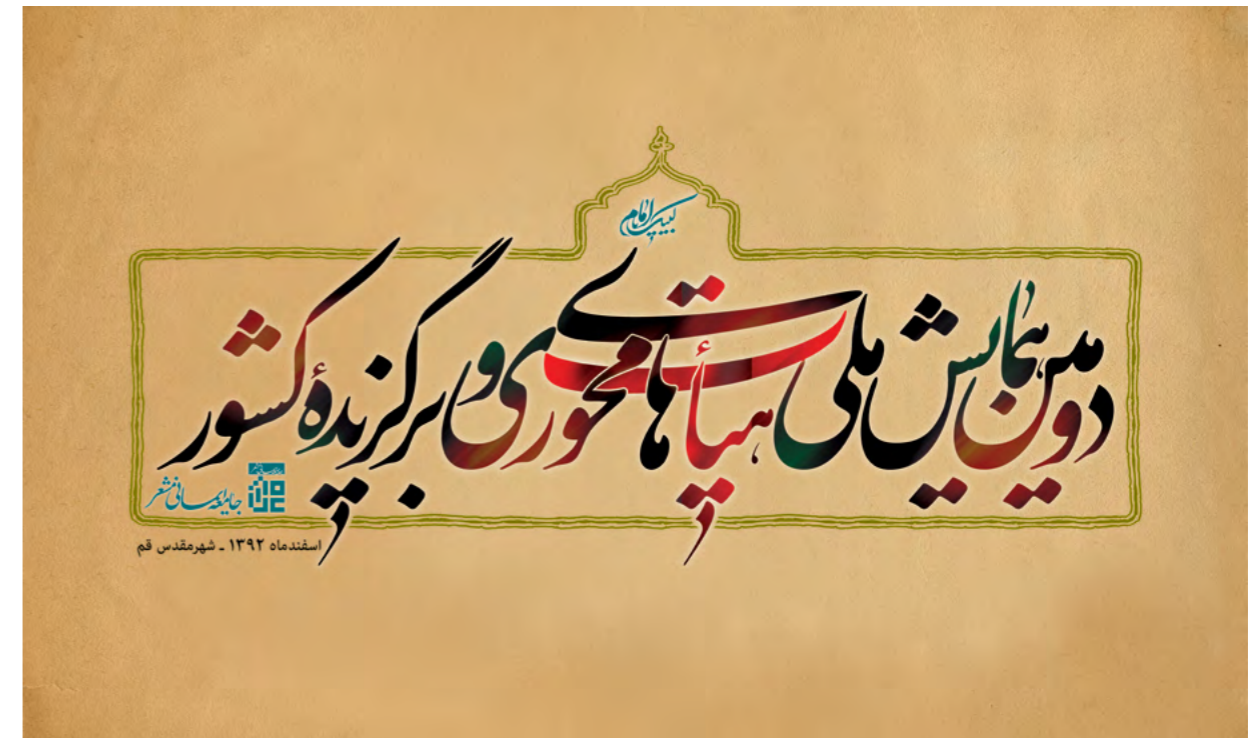 لبیک یا امام
دومین همایش ملی هیأت‌های محوری و برگزیدهٔ کشور
جامعه ایمانی مشعر
اسفندماه ۱۳۹۲ ـ شهرمقدس قم